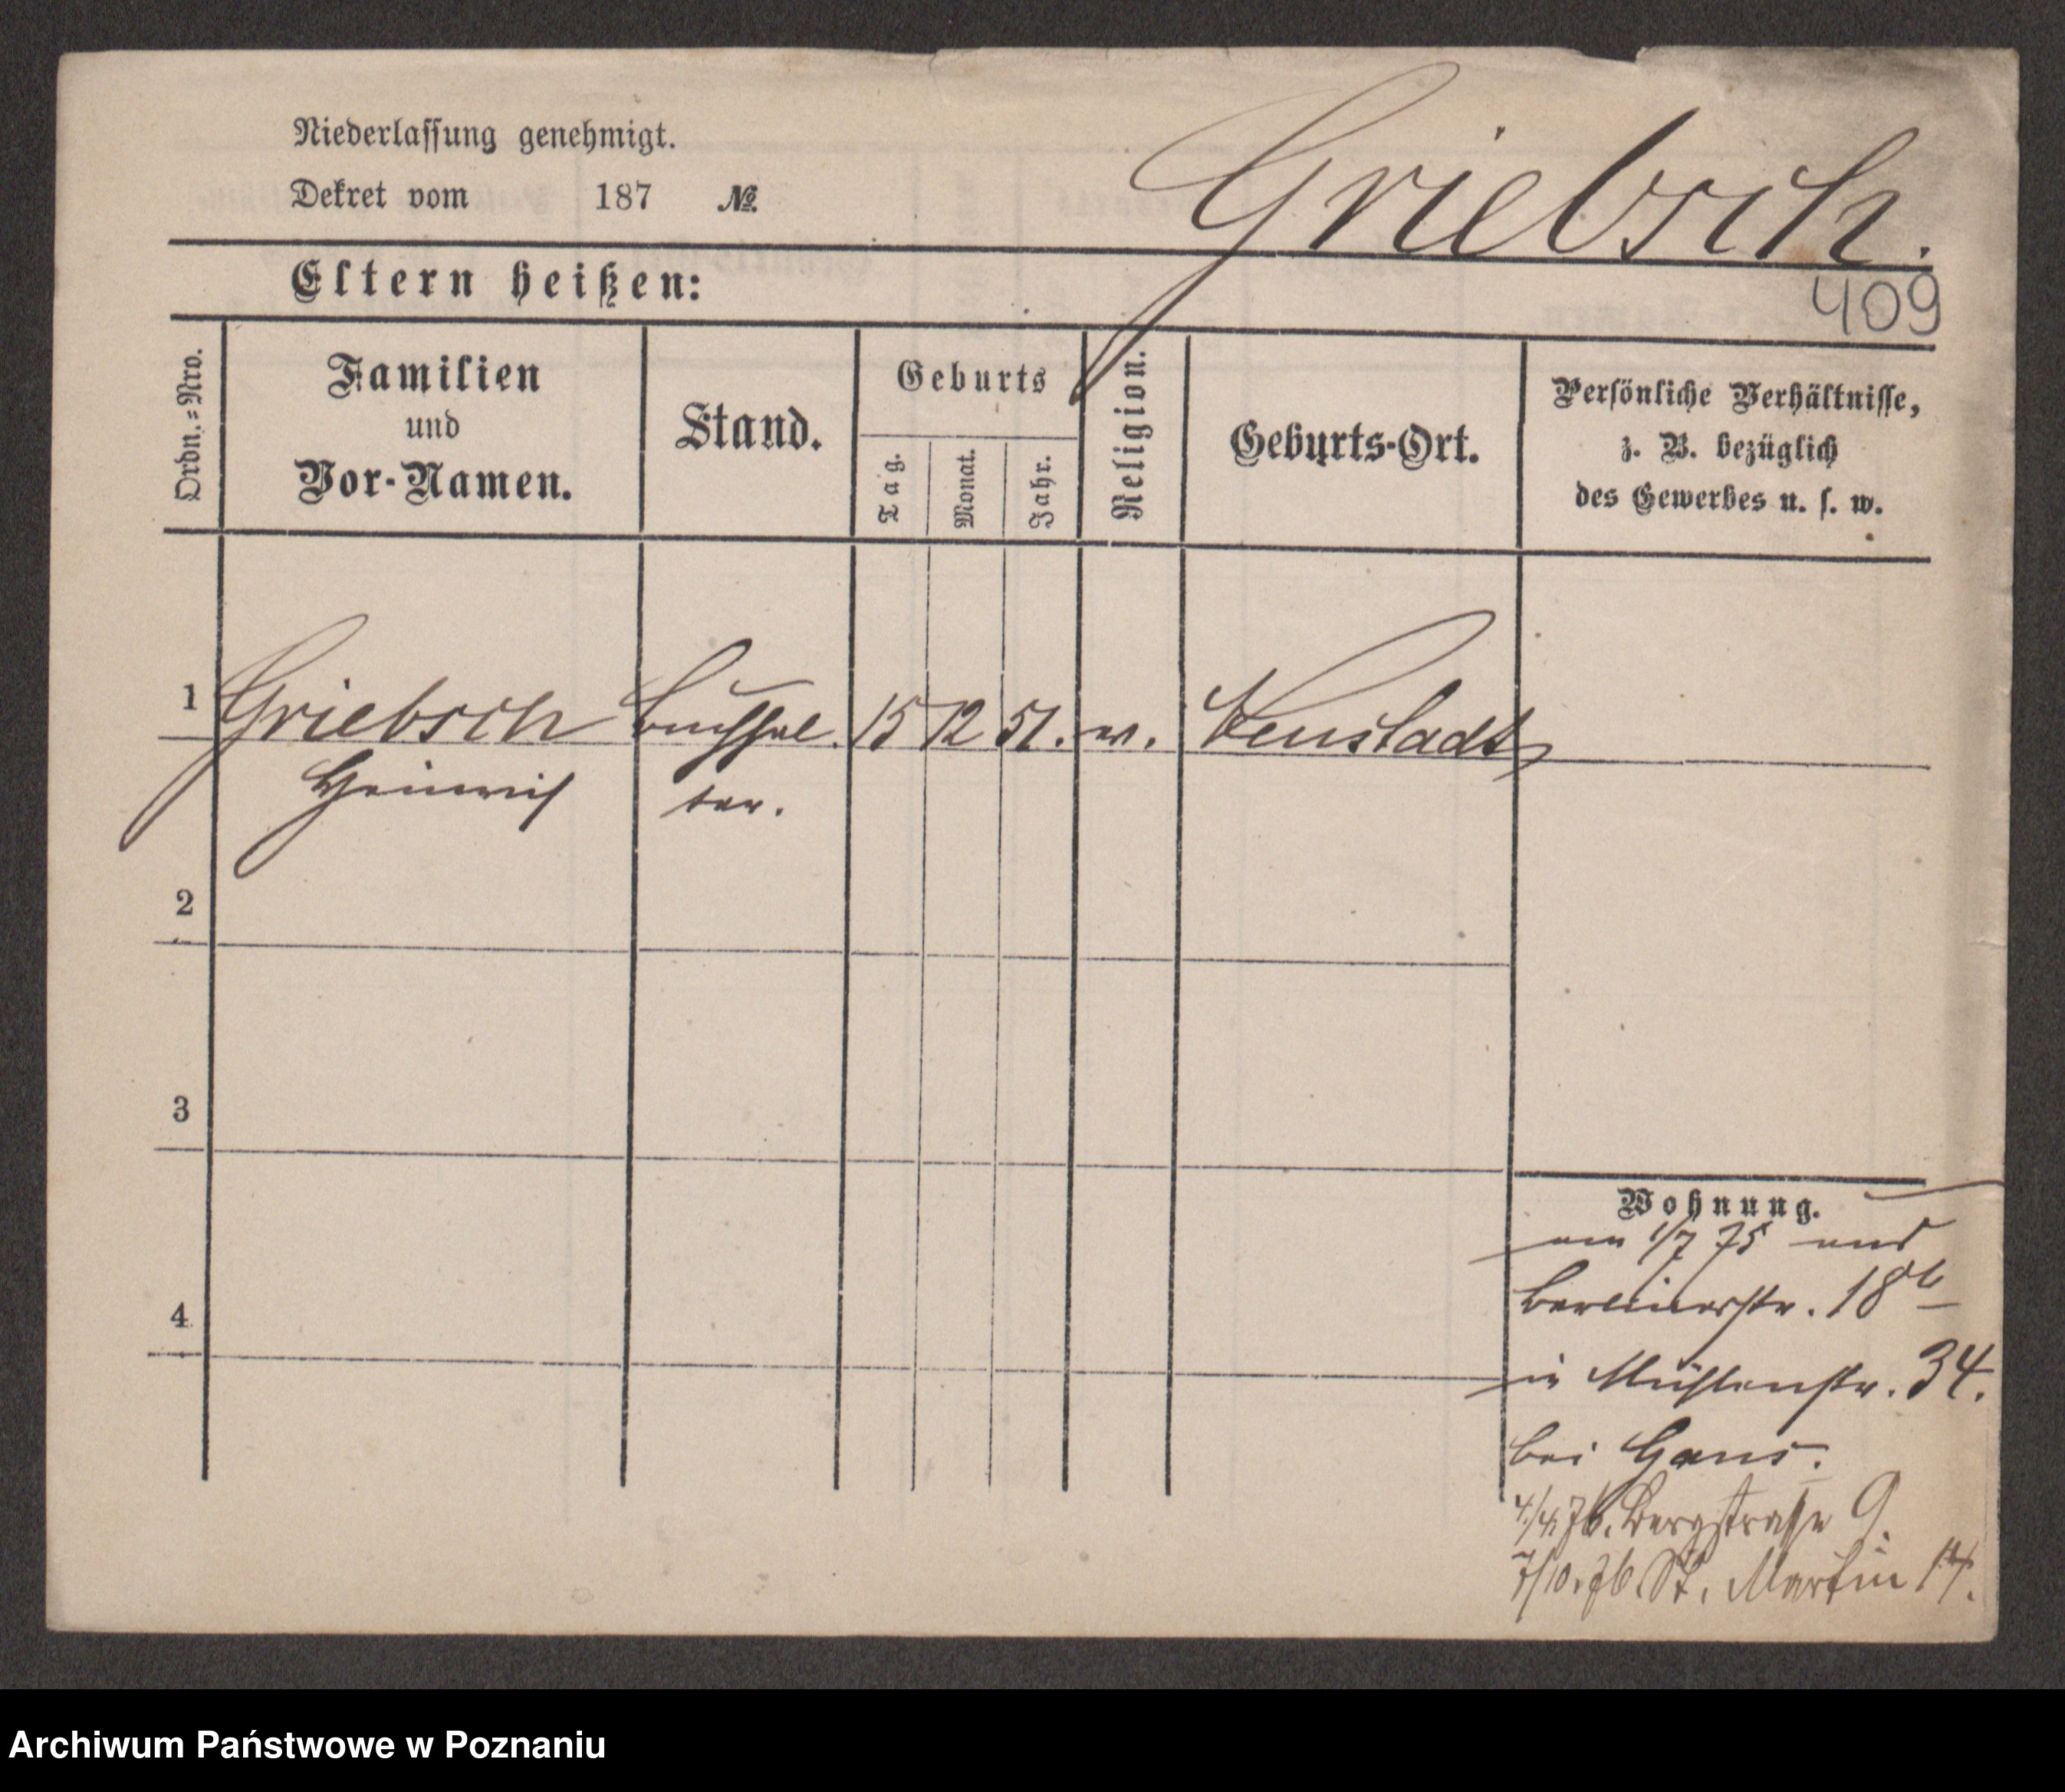 Niederlassung genehmigt.
Dekret vom 187 №
Griebsch.
409
Eltern heißen:
Ordn.=Nro.
Familien
und
Vor-Namen.
Stand.
Geburts
Tag.
Monat.
Jahr.
Religion.
Geburts-Ort.
Persönliche Verhältnisse,
z. B. bezüglich
des Gewerbes u. s. w.
1 Griebsch Buchhal. 15 12 51. Neustadt
Heinrich ter.
2
3
4
Wohnung.
am 1/7 75
Berlinerstr. 18b
in Mühlenstr. 34.
bei Gans.
4/4 76. Bergstrasse 9.
7/10. 76. St. Martin 14.
Archiwum Państwowe w Poznaniu